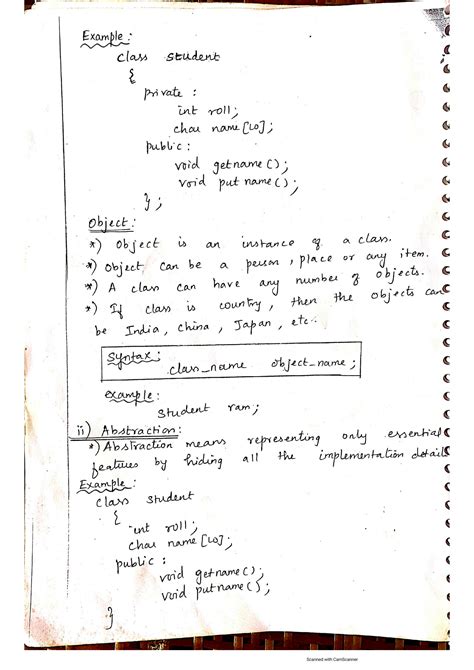 Example :
class student
{
private :
int roll;
char name[10];
public :
void getname();
void putname();
};
Object :
*) Object is an instance of a class.
*) Object can be a person, place or any item.
*) A class can have any number of objects.
*) If class is country, then the objects can
be India, china, Japan, etc..
Syntax :
class_name object_name;
example :
student ram;
ii) Abstraction :
*) Abstraction means representing only essential
features by hiding all the implementation details
Example :
class student
{
int roll;
char name[10];
public :
void getname();
void putname();
}
Scanned with CamScanner